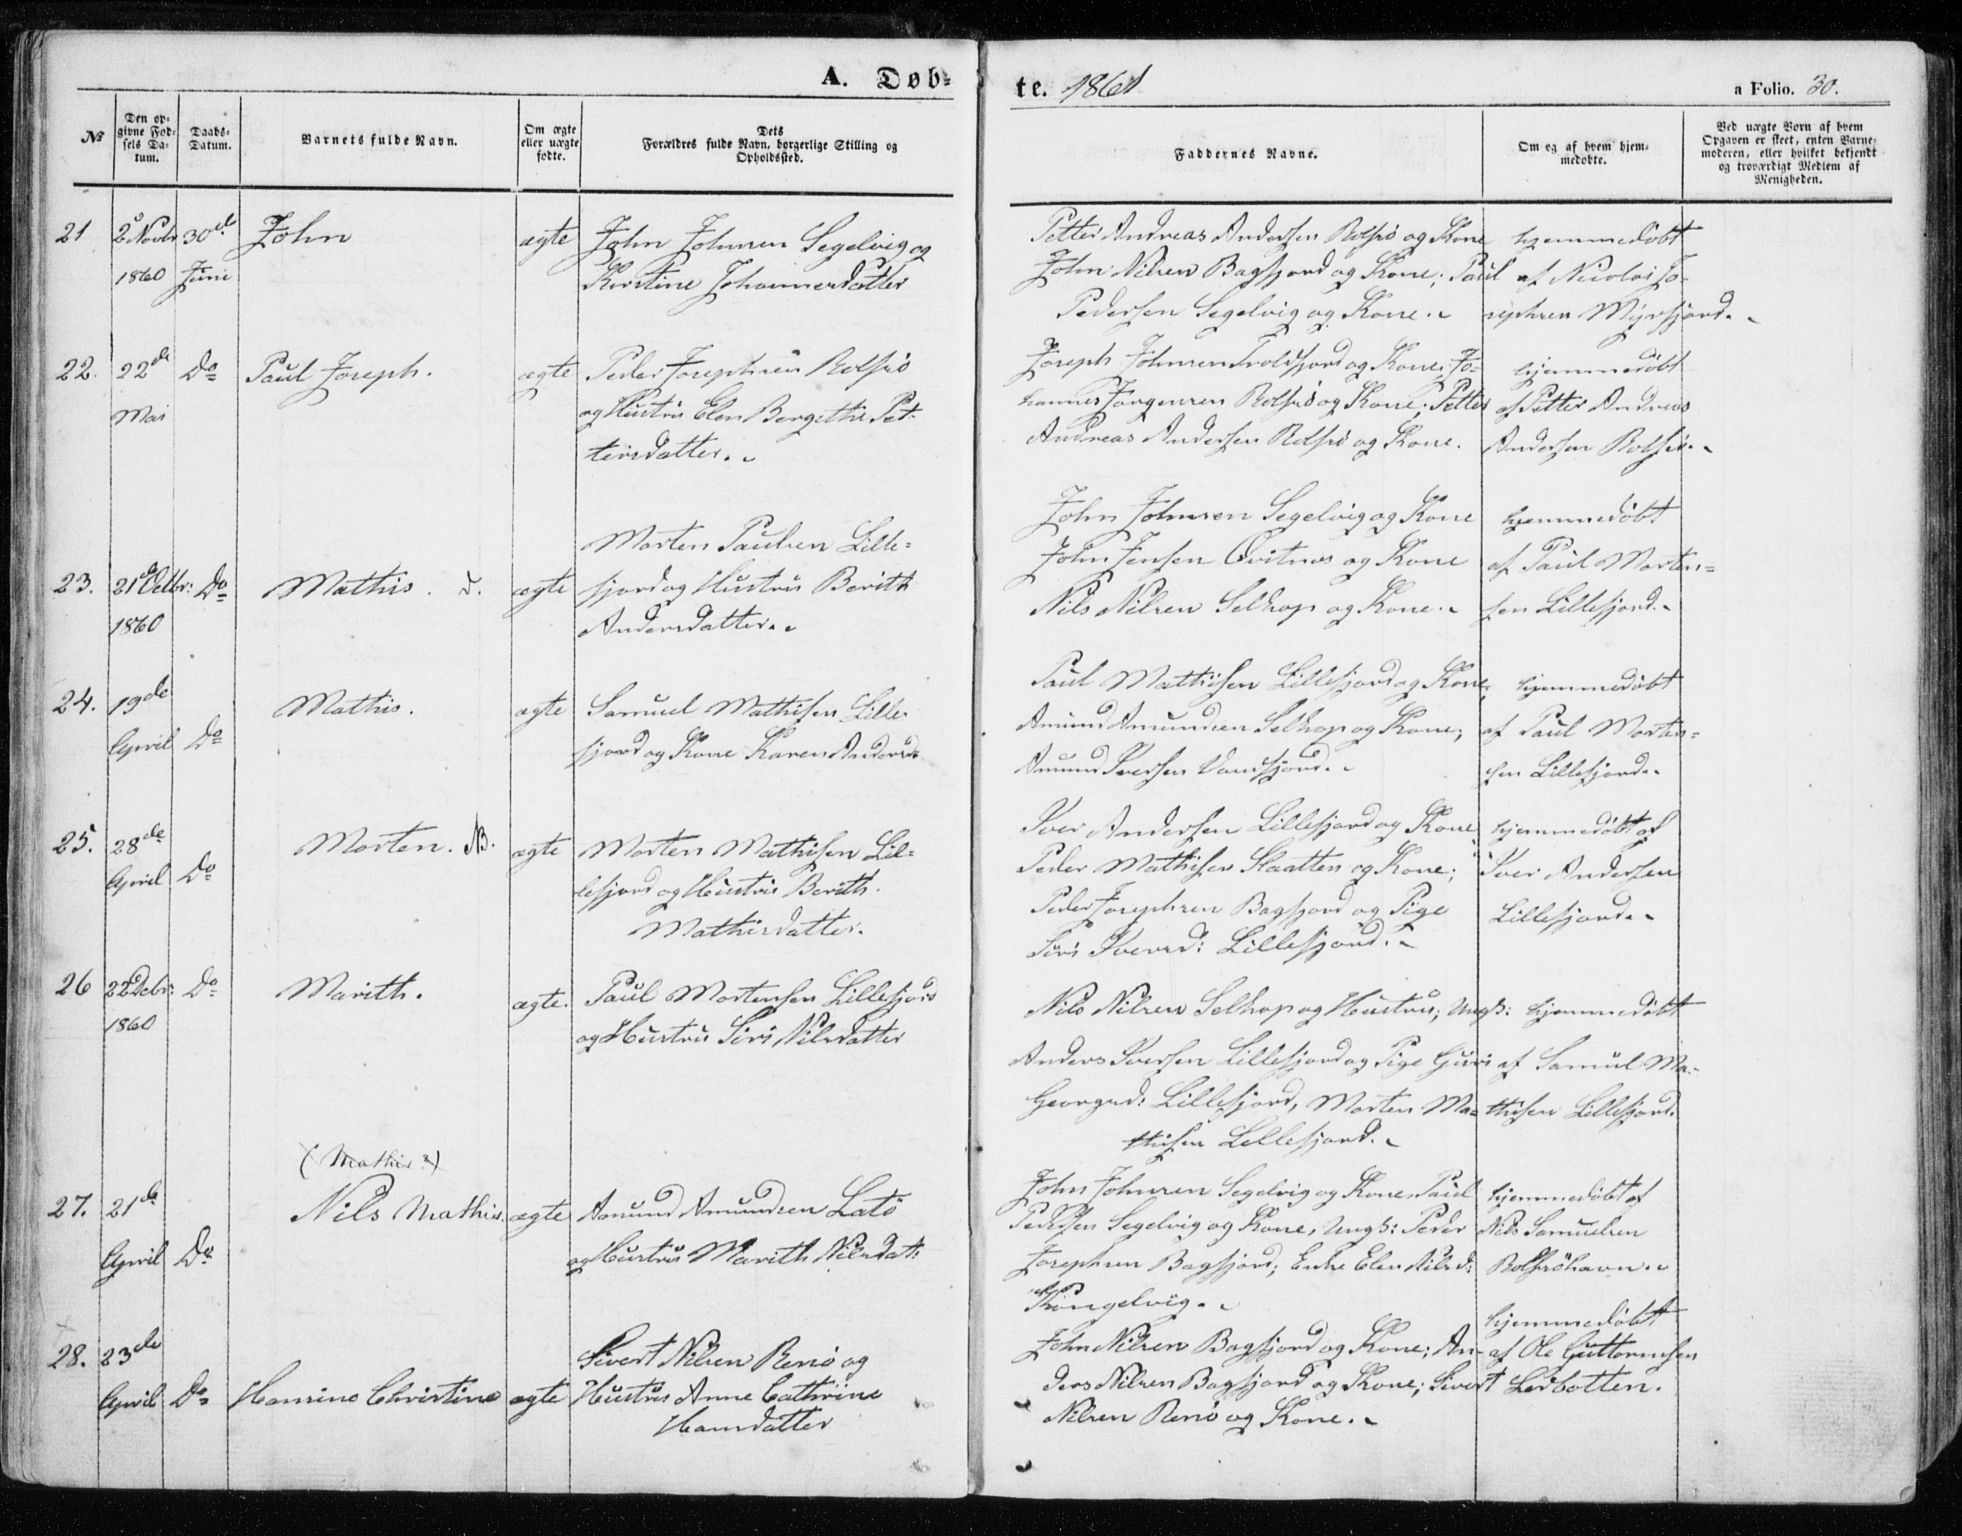 A. Døb-
te. 1861
a Folio. 30.
№
Den op-
givne Fød-
sels Da-
tum.
Daabs-
Datum.
Barnets fulde Navn.
Om ægte
eller uægte
fødte.
Dets
Forældres fulde Navn, borgerlige Stilling og
Opholdssted.
Faddernes Navne.
Om og af hvem hjem-
medøbte.
Ved uægte Børn af hvem
Opgaven er skeet, enten Barne-
moderen, eller hvilket bekjendt
og troværdigt Medlem af
Menigheden.
21 2 Novbr 30de John ægte John Johnsen Segelvig og
1860 Juni Kirstine Johannesdatter
Petter Andreas Andersen Rolfsø og Kone hjemmedöbt
John Nilsen Bagfjord og Kone; Paul af Nicolai Jo-
Pedersen Segelvig og Kone. sephsen Myrfjord.
22. 22de Do Paul Joseph. ægte Peder Josephsen Rolfsö
Mai og Hustru Elen Bergithe Pet-
tersdatter.
Joseph Johnsen Troldfjord og Kone; Jo- hjemmedöbt
hannes Jørgensen Rolfsö og Kone; Petter af Petter Andreas
Andreas Andersen Rolfsö og Kone. Andersen Rolfsö.
Morten Paulsen Lille-
23. 21de Octbr: Do Mathis. ægte fjord og Hustru Berith
1860 Andersdatter.
John Johnsen Segelvig og Kone hjemmedöbt
John Jensen Qvitnes og Kone af Paul Morten-
Nils Nilsen Selhop og Kone. sen Lillefjord.
24. 19de Mathis. ægte Samuel Mathisen Lille-
April Do fjord og Kone Karen Andersd:
Paul Mathisen Lillefjord og Kone, hjemmedöbt
Amund Amundsen Selhop og Kone; af Paul Morten-
Amund Iversen Vandfjord. sen Lillefjord.
25. 28de Morten. NB. ægte Morten Mathisen Lil-
April Do lefjord og Hustru Berith
Mathisdatter.
Iver Andersen Lillefjord og Kone hjemmedöbt af
Peder Mathisen Slaatten og Kone; Iver Andersen
Peder Josephsen Bagfjord og Pige Lillefjord.
Siri Iversd: Lillefjord.
26 22 Debr: Do Marith. ægte. Paul Mortensen Lillefjord
1860 og Hustru Siri Nilsdatter
Nils Nilsen Selhop og Hustru; Ungk: hjemmedöbt
Anders Iversen Lillefjord og Pige Guri af Samuel Ma-
Georgsd: Lillefjord, Morten Ma- thisen Lillefjord.
thisen Lillefjord.
(Mathis?)
27. 21de Nils Mathis. ægte Amund Amundsen Latö
April Do og Hustru Marith Nilsdat:
John Johnsen Segelvig og Kone, Paul hjemmedöbt af
Pedersen Segelvig og Kone, Ungk: Peder Nils Samuelsen
Josephsen Bagfjord; Enke Elen Nilsd: Rolfsöhavn.
Kongelvig.
28. 23de Sivert Nilsen Renö og
April Do Hansine Christine ægte Hustru Anne Cathrine
Hansdatter
hjemmedöbt
John Nilsen Bagfjord og Kone; An- af Ole Guttormsen
ders Nilsen Bagfjord og Kone; Sivert Leirbotten.
Nilsen Renö og Kone.